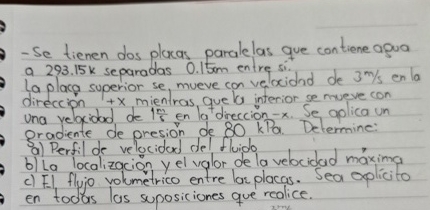 - Se tienen dos placas paralelas que contiene agua
a 293.15K separadas 0.15m entre si.
La placa superior se mueve con velocidad de 3 m/s en la
dirección +x mientras que la inferior se mueve con
una velocidad de 1 m/s en la dirección -x. Se aplica un
gradiente de presión de 80 kPa. Determine:
a) Perfil de velocidad del fluido
b) La localización y el valor de la velocidad máxima
c) El flujo volumétrico entre las placas. Sea explícito
en todas las suposiciones que realice.